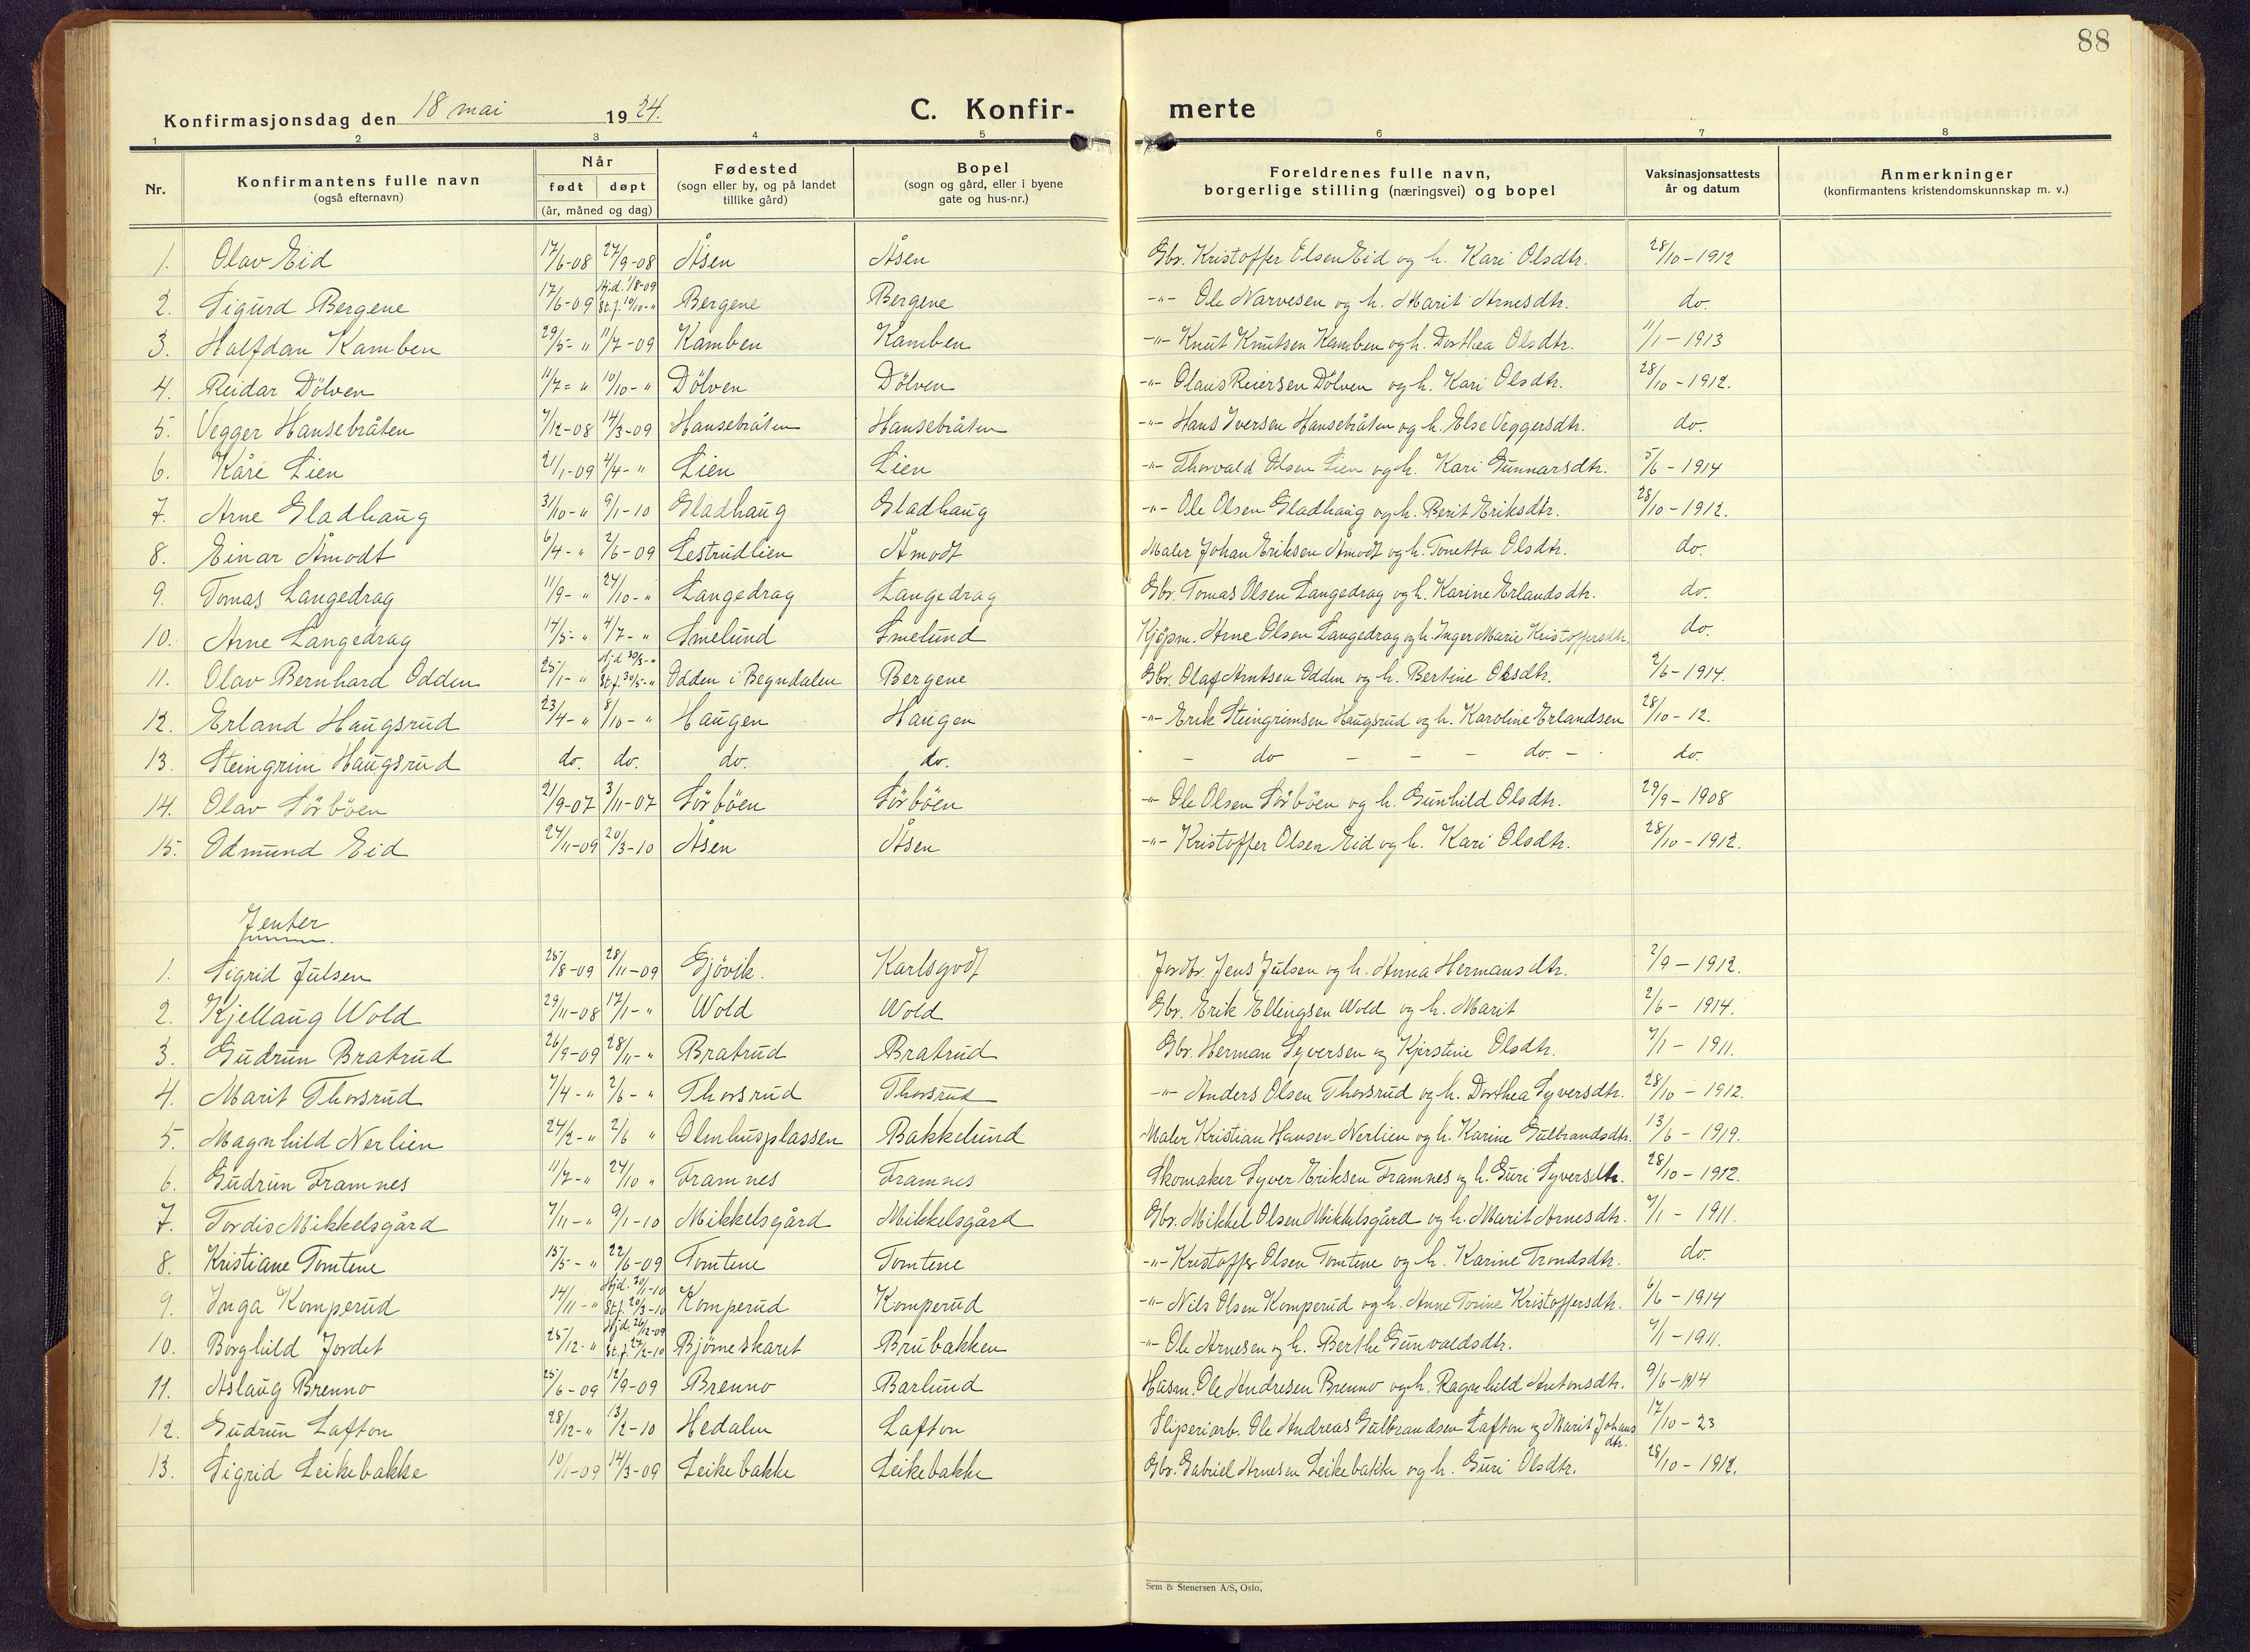 88
Konfirmasjonsdag den 18 mai 1924.
C. Konfir-merte
1 2 3 4 5 6 7 8
Nr. | Konfirmantens fulle navn (også efternavn) | Når født | døpt (år, måned og dag) | Fødested (sogn eller by, og på landet tillike gård) | Bopel (sogn og gård, eller i byene gate og hus-nr.) | Foreldrenes fulle navn, borgerlige stilling (næringsvei) og bopel | Vaksinasjonsattests år og datum | Anmerkninger (konfirmantens kristendomskunnskap m. v.)
1. Olav Eid 17/6-08 27/9-08 Åsen Åsen Gbr. Kristoffer Olsen Eid og h. Kari Olsdtr. 28/10-1912
2. Sigurd Bergene 17/6-09 Hjd. 1/8-09 St.f. 10/10-" Bergene Bergene -"- Ole Narvesen og h. Marit Arnesdtr. do.
3. Halfdan Kamben 29/5-" 11/7-09 Kamben Kamben -"- Knut Knutsen Kamben og h. Dorthea Olsdtr. 11/1-1913
4. Reidar Dölven 11/7-" 10/10-" Dölven Dölven -"- Olaus Reiersen Dölven og h. Kari Olsdtr. 28/10-1912.
5. Vegger Hansebråten 7/12-08 14/3-09 Hansebråten Hansebråten -"- Hans Iversen Hansebråten og h. Else Veggersdtr. do.
6. Kåre Lien 21/1-09 4/4-" Lien Lien -"- Thorvald Olsen Lien og h. Kari Gunnarsdtr. 5/6-1914
7. Arne Gladhaug 31/10-" 9/1-10 Gladhaug Gladhaug -"- Ole Olsen Gladhaug og h. Berit Eriksdtr. 28/10-1912.
8. Einar Åmodt 6/4-" 2/6-09 Lestrudlien Åmodt Maler Johan Eriksen Åmodt og h. Tonetta Olsdtr. do.
9. Tomas Langedrag 11/9-" 24/10-" Langedrag Langedrag Gbr. Tomas Olsen Langedrag og h. Karine Erlandsdtr. do.
10. Arne Langedrag 14/5-" 4/7-" Smelund Smelund Kjöpm. Arne Olsen Langedrag og h. Inger Marie Kristoffersdtr. do.
11. Olav Bernhard Odden 25/1-" Hjd 30/3-" St.f. 30/5-" Odden i Begndalen Bergene Gbr. Olaf Arntsen Odden og h. Bertine Olsdtr. 2/6-1914.
12. Erland Haugsrud 23/4-" 8/10-" Haugen Haugen -"- Erik Steingrimsen Haugsrud og h. Karoline Erlandsen 28/10-12.
13. Steingrim Haugsrud do. do. do. do. - do - - - do. - do.
14. Olav Sörböen 21/9-07 3/11-07 Sörböen Sörböen -"- Ole Olsen Sörböen og h. Gunhild Olsdtr. 29/9-1908
15. Odmund Eid 24/11-09 20/3-10 Åsen Åsen -"- Kristoffer Olsen Eid og h. Kari Olsdtr. 28/10-1912.
Jenter
1. Sigrid Julsen 25/8-09 28/11-09 Gjövik. Karlsgodt Jordbr. Jens Julsen og h. Anna Hermansdtr. 2/9-1912.
2. Kjellaug Wold 29/11-08 17/1-" Wold Wold Gbr. Erik Ellingsen Wold og h. Marit 2/6-1914.
3. Gudrun Bratrud 26/9-09 28/11-" Bratrud Bratrud Gbr. Herman Syversen og Kjerstine Olsdtr. 7/1-1911.
4. Marit Thorsrud 7/4-" 2/6-" Thorsrud Thorsrud -"- Anders Olsen Thorsrud og h. Dorthea Syversdtr. 28/10-1912.
5. Magnhild Nerlien 24/2-" 2/6 " Olmhusplassen Bakkelund Maler Kristian Hansen Nerlien og h. Karine Gulbrandsdtr. 13/6-1919.
6. Gudrun Framnes 11/7-" 24/10 " Framnes Framnes Skomaker Syver Eriksen Framnes og h. Guri Syversdtr. 28/10-1912.
7. Tordis Mikkelsgård 7/11-" 9/1-10 Mikkelsgård Mikkelsgård Gbr. Mikkel Olsen Mikkelsgård og h. Marit Arnesdtr. 7/1-1911.
8. Kristiane Tomtene 15/5-" 22/6-09 Tomtene Tomtene -"- Kristoffer Olsen Tomtene og h. Karine Trondsdtr. do.
9. Inga Komperud 14/11-" Hjd. 20/1-10 St.f. 20/3-10 Komperud Komperud -"- Nils Olsen Komperud og h. Anne Torine Kristoffersdtr. 6/6-1914
10. Borghild Jordet 25/12-" Hjd. 26/12-09 St.f. 27/2-10 Bjørneskaret Brubakken -"- Ole Arnesen og h. Berthe Gunvaldsdtr. 7/1-1911.
11. Aslaug Brenno 25/6-09 12/9-09 Brenno Barlund Husm. Ole Andresen Brenno og h. Ragnhild Antonsdtr. 9/6-1914
12. Gudrun Lafton 28/12-" 13/2-10 Hedalen Lafton Sliperiarb. Ole Andreas Gulbrandsen Lafton og Marit Johansdtr. 17/10-23
13. Sigrid Leikebakke 10/1-09 14/3-09 Leikebakke Leikebakke Gbr. Gabriel Arnesen Leikebakke og h. Guri Olsdtr. 28/10-1912.
Sem & Stenersen A/S, Oslo.